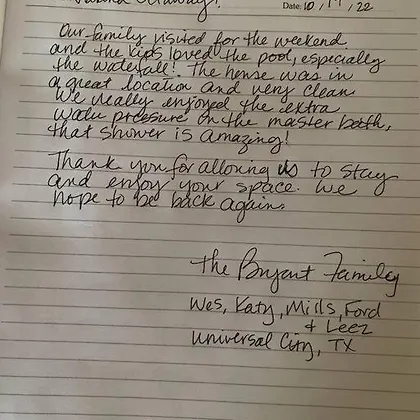 Date: 10/ /22
Our family visited for the weekend
and the kids loved the pool, especially
the waterfall! The house was in
a great location and very clean.
We really enjoyed the extra
water pressure on the master bath,
that shower is amazing!
Thank you for allowing us to stay
and enjoy your space. We
hope to be back again.
The Bryant Family
Wes, Katy, Mills, Ford
+ Leez
Universal City, TX